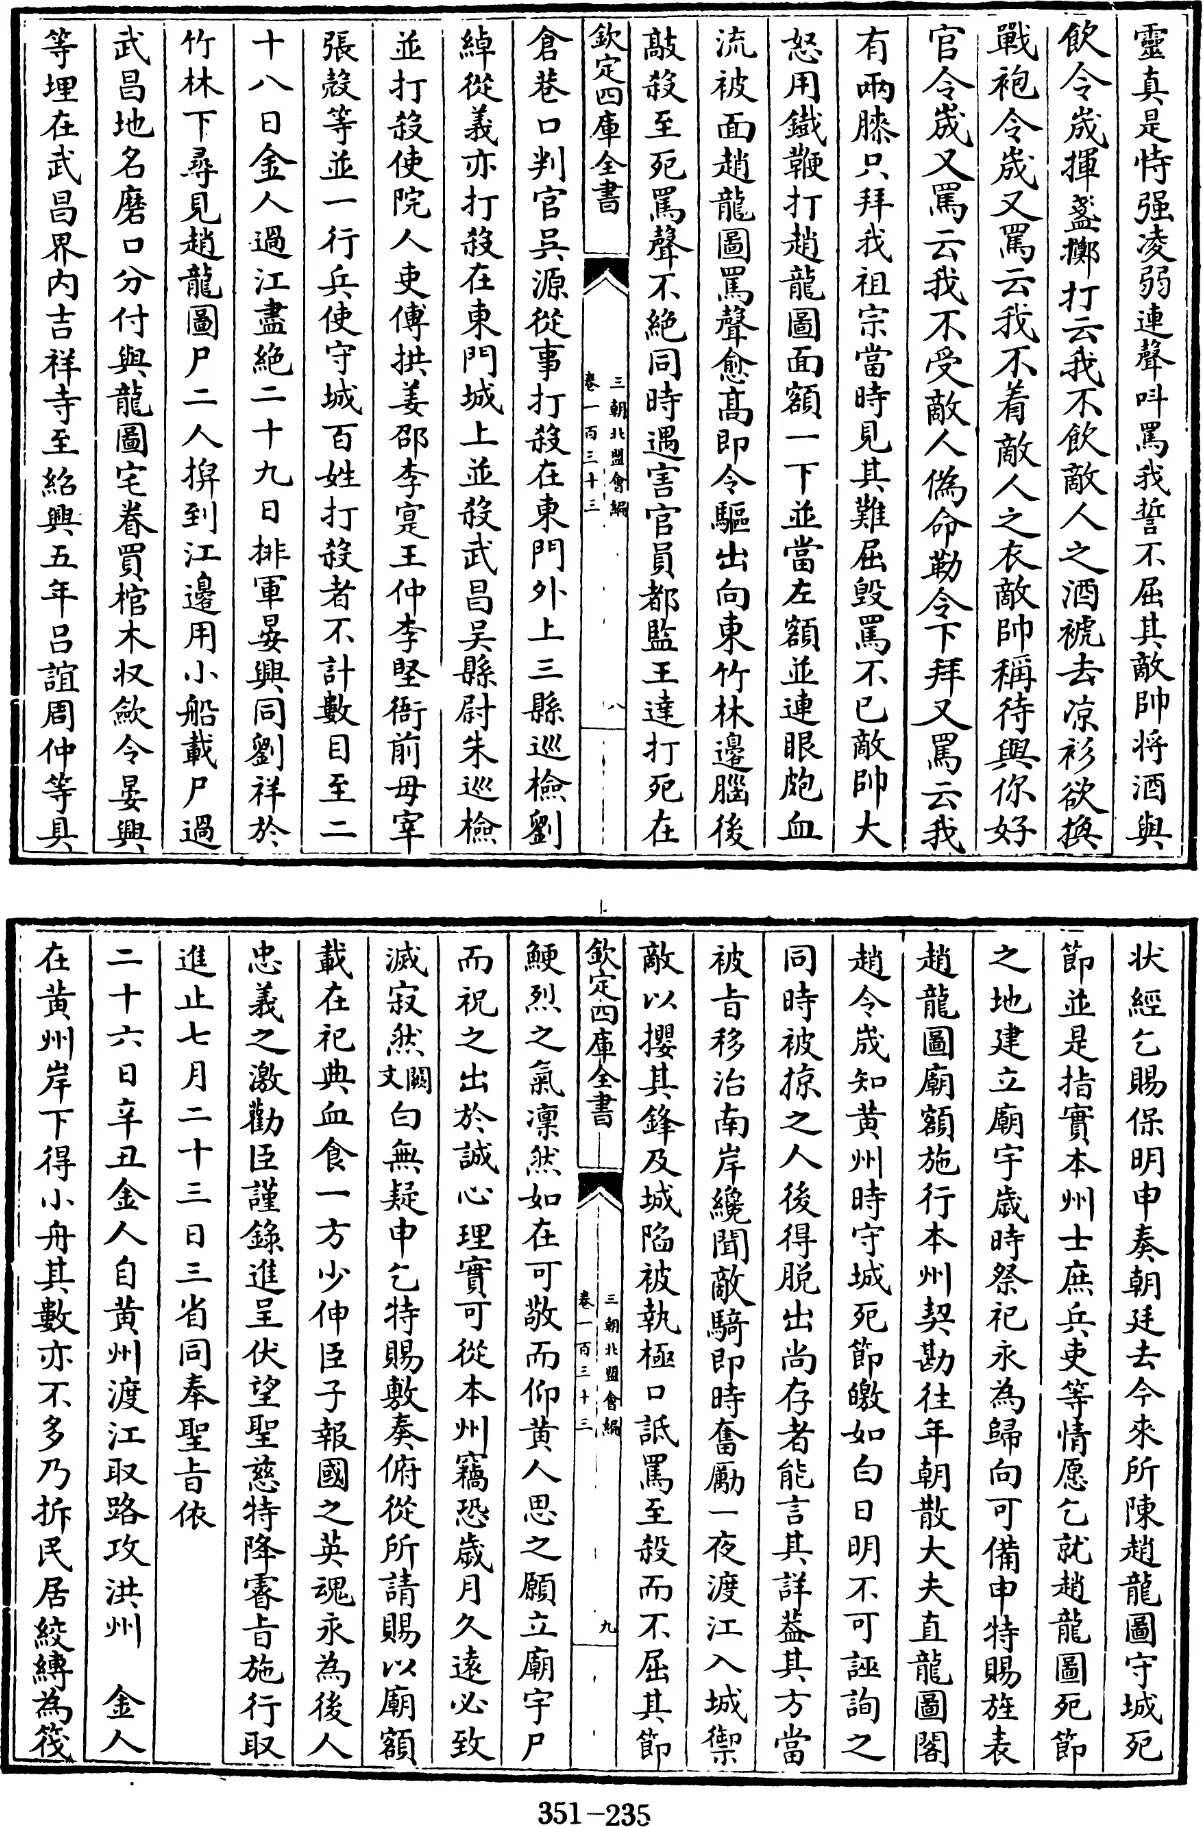 靈真是恃强凌弱連聲呌罵我誓不屈其敵帥将酒與
飲令㟴揮盞擲打云我不飲敵人之酒褫去凉衫欲換
戰袍令㟴又罵云我不着敵人之衣敵帥稱待與你好
官令㟴又罵云我不受敵人偽命勒令下拜又罵云我
有兩膝只拜我祖宗當時見其難屈毁罵不已敵帥大
怒用鐵鞭打趙龍圖面額一下並當左額並連眼皰血
流被面趙龍圖罵聲愈高即令驅出向東竹林邊腦後
敲殺至死罵聲不絶同時遇害官員都監王達打死在
欽定四庫全書
三朝北盟會編
卷一百三十三
八
倉巷口判官吳源從事打殺在東門外上三縣巡檢劉
綽從義亦打殺在東門城上並殺武昌吳縣尉朱巡檢
並打殺使院人吏傅拱姜邵李寔王仲李堅衙前毋宰
張殼等並一行兵使守城百姓打殺者不計數目至二
十八日金人過江盡絶二十九日排軍晏興同劉祥於
竹林下尋見趙龍圖尸二人搿到江邊用小船載尸過
武昌地名磨口分付與龍圖宅眷買棺木收歛令晏興
等埋在武昌界内吉祥寺至紹興五年吕誼周仲等具
状經乞賜保明申奏朝廷去今來所陳趙龍圖守城死
節並是指實本州士庶兵吏等情愿乞就趙龍圖死節
之地建立廟宇歲時祭祀永為歸向可備申特賜旌表
趙龍圖廟額施行本州契勘往年朝散大夫直龍圖閣
趙令㟴知黄州時守城死節皦如白日明不可誣詢之
同時被掠之人後得脱出尚存者能言其詳葢其方當
被㫖移治南岸纔聞敵騎即時奮勵一夜渡江入城禦
敵以攖其鋒及城陷被執極口詆罵至殺而不屈其節
欽定四庫全書
三朝北盟會編
卷一百三十三
九
鯁烈之氣凜然如在可敬而仰黄人思之願立廟宇尸
而祝之出於誠心理實可從本州竊恐歲月久遠必致
滅寂然闕文白無疑申乞特賜敷奏俯從所請賜以廟額
載在祀典血食一方少伸臣子報國之英魂永為後人
忠義之激勸臣謹錄進呈伏望聖慈特降睿㫖施行取
進止七月二十三日三省同奉聖㫖依
二十六日辛丑金人自黄州渡江取路攻洪州　金人
在黄州岸下得小舟其數亦不多乃拆民居絞縛為筏
351-235